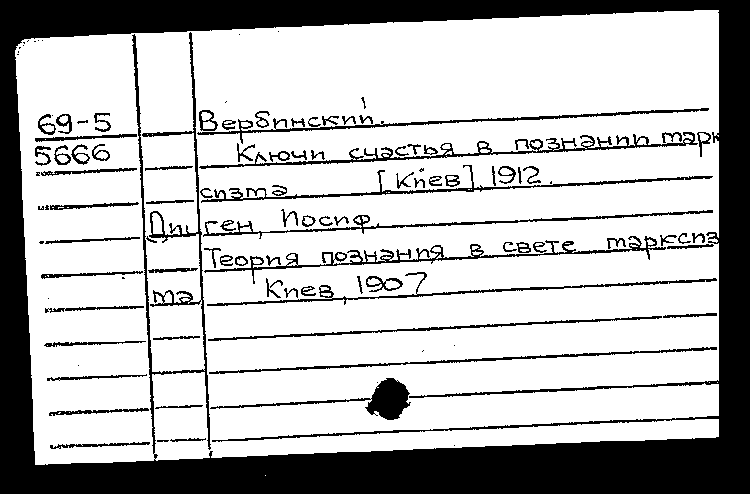 69-5 Вербинский.
5666 Ключи счастья в познании марк
сизма. [Киев], 1912.
Дицген, Иосиф.
Теория познания в свете марксиз
ма Киев, 1907